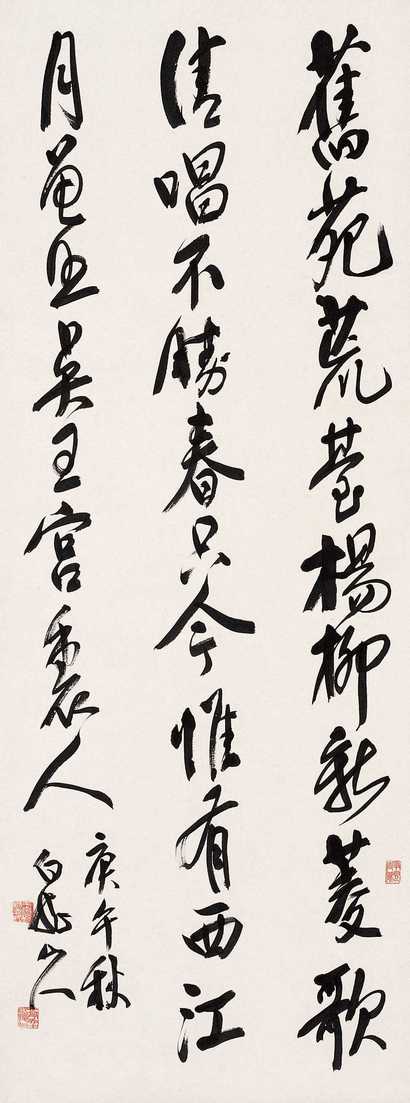 舊苑荒臺楊柳新菱歌
清唱不勝春只今惟有西江
月曾照吳王宮裏人
庚午秋
白